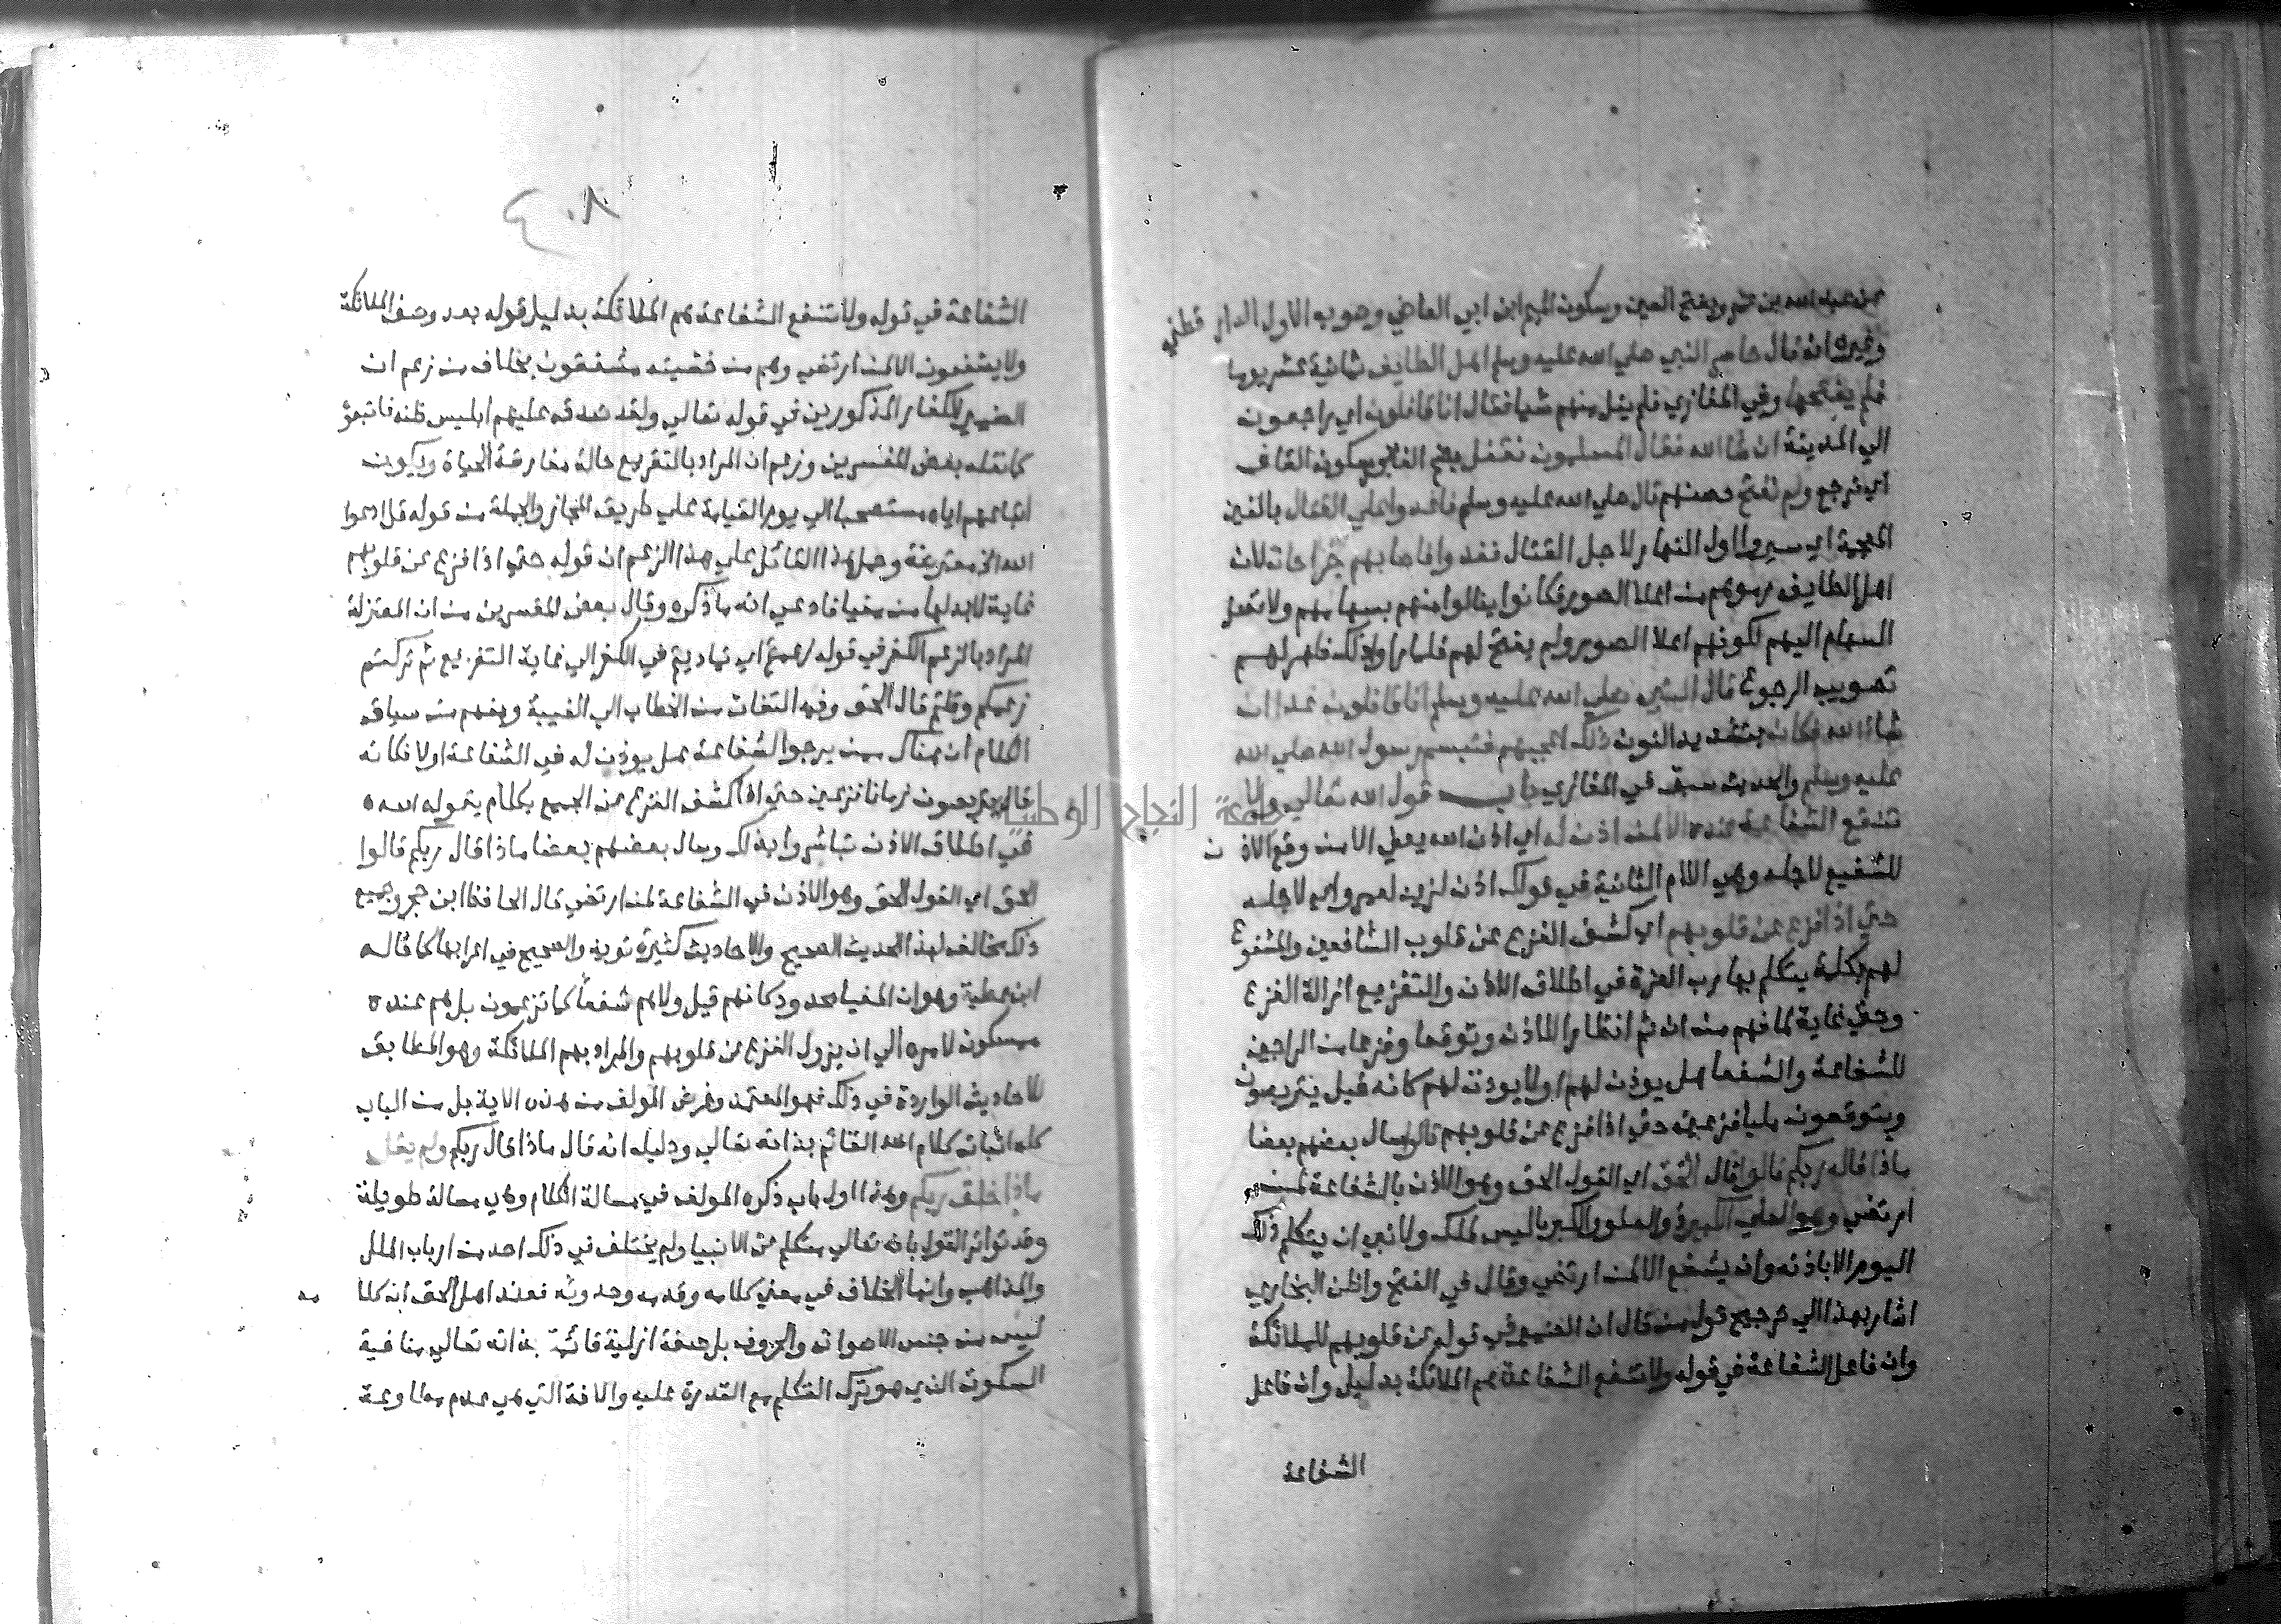 عن عبد الله بن عمر وبفتح العين وسكون الميم ابن ابي العاضي وصوب الاول الدار قطني
وغيره انه قال حاصر النبي صلي الله عليه وسلم اهل الطايف ثمانية عشر يوما
فلم يفتحها وفي المغازي فلم ينل منهم شيا فقال انا قافلون اي راجعون
الي المدينة ان شا الله فقال المسلمون نقفل بضم الفا وسكون القاف
اي نرجع ولم نفتح حصنهم قال صلي الله عليه وسلم فاغدوا علي القتال بالغين
المعجمة اي سيروا اول النهار لاجل القتال فغدوا فاصابهم جراحات لان
اهل الطايف رموهم من اعلا الصور فكانوا ينالوا منهم بسهامهم ولا تصل
السهام اليهم لكونهم اعلا الصور ولم يفتح لهم فلما راوا ذلك ظهر لهم
تصويب الرجوع قال النبي صلي الله عليه وسلم انا قافلون غدا ان
شاء الله فكان بتشديد النون ذلك اعجبهم فتبسم رسول الله صلي الله
عليه وسلم والحديث سبق في المغازي باب قول الله تعالي ولا
تنفع الشفاعة عنده الا لمن اذن له اي اذن الله يعني الا من وقع الاذن
للشفيع لاجله وهي اللام الثانية في قولك اذن لزيد لعمرو اي لاجله
حتي اذا فزع عن قلوبهم اي كشف الفزع عن قلوب الشافعين والمشفوع
لهم بكلمة يتكلم بها رب العزة في اطلاق الاذن والتفزيع ازالة الفزع
وحتي غاية لما فهم من ان ثم انتظارا للاذن وتوقعا وفزعا من الراجين
للشفاعة والشفعا هل يوذن لهم او لا يوذن لهم كانه قيل يتربصون
ويتوقعون مليا فزعين حتي اذا فزع عن قلوبهم قالوا سال بعضهم بعضا
ماذا قال ربكم قالوا قال الحق اي القول الحق وهو الاذن بالشفاعة لمن
ارتضي وهو العلي الكبير ذو العلو والكبريا ليس لملك ولا نبي ان يتكلم ذلك
اليوم الا باذنه وان يشفع الا لمن ارتضي وقال في الفتح واظن البخاري
اشار بهذا الي ترجيح قول من قال ان الضمير في قوله عن قلوبهم للملائكة
وان فاعل الشفاعة في قوله ولا تنفع الشفاعة هم الملائكة بدليل وان فاعل
الشفاعة
٤٠٨
الشفاعة في قوله ولا تنفع الشفاعة هم الملائكة بدليل قوله بعد وصف الملائكة
ولا يشفعون الا لمن ارتضي وهم من خشيته مشفقون بخلاف من زعم ان
الضمير للكفار المذكورين في قوله تعالي ولقد صدق عليهم ابليس ظنه فاتبعوه
كما نقله بعض المفسرين وزعم ان المراد بالتفزيع حالة مفارقة الحياة ويكون
اتباعهم اياه مستصحبا الي يوم القيامة علي طريق المجاز والجملة من قوله قل ادعوا
الله الخ معترضة وحمل هذا القائل علي هذا الزعم ان قوله حتي اذا فزع عن قلوبهم
غاية لا بد لها من مغيا فادعي انه ما ذكره وقال بعض المفسرين من ان المعتزلة
المراد بالزعم الكفر في قوله زعمتم اي تماديتم في الكفر الي غاية التفزيع ثم تركتم
زعمكم وقلتم قال الحق وفيه التفات من الخطاب الي الغيبة ويفهم من سياق
الكلام ان هناك من يرجوا الشفاعة هل يوذن له في الشفاعة او لا فكانه
قال يتربصون زمانا فزعين حتي اذا كشف الفزع عن الجميع بكلام يقوله الله
في اطلاق الاذن تباشروا بذلك وسال بعضهم بعضا ماذا قال ربكم قالوا
الحق اي القول الحق وهو الاذن في الشفاعة لمن ارتضي قال الحافظ ابن حجر وجميع
ذلك مخالف لهذا الحديث الصحيح والاحاديث كثيرة تويده والصحيح في اعرابها ما قاله
ابن عطية وهو ان المغيا محذوف كانهم قيل ولا هم شفعاً كما تزعمون بل هم عنده
ممسكون لامره الي ان يزول الفزع عن قلوبهم والمراد بهم الملائكة وهو المطابق
للاحاديث الواردة في ذلك فهو المعتمد وغرض المولف من هذه الاية بل من الباب
كله اثبات كلام الله القائم بذاته تعالي ودليله انه قال ماذا قال ربكم ولم يقل
ماذا خلق ربكم وهذا اول باب ذكره المولف في مسالة الكلام وهي مسالة طويلة
وقد تواتر القول بانه تعالي متكلم عن الانبيا ولم يختلف في ذلك احد من ارباب الملل
والمذاهب وانما الخلاف في معني كلامه وقدمه وحدوثه فعند اهل الحق ان كلا مه
ليس من جنس الاصوات والحروف بل صفة ازلية قائمة بذاته تعالي منافية
السكوت الذي هو ترك التكلم مع القدرة عليه والافة التي هي عدم مطاوعة
جامعة النجاح الوطنية